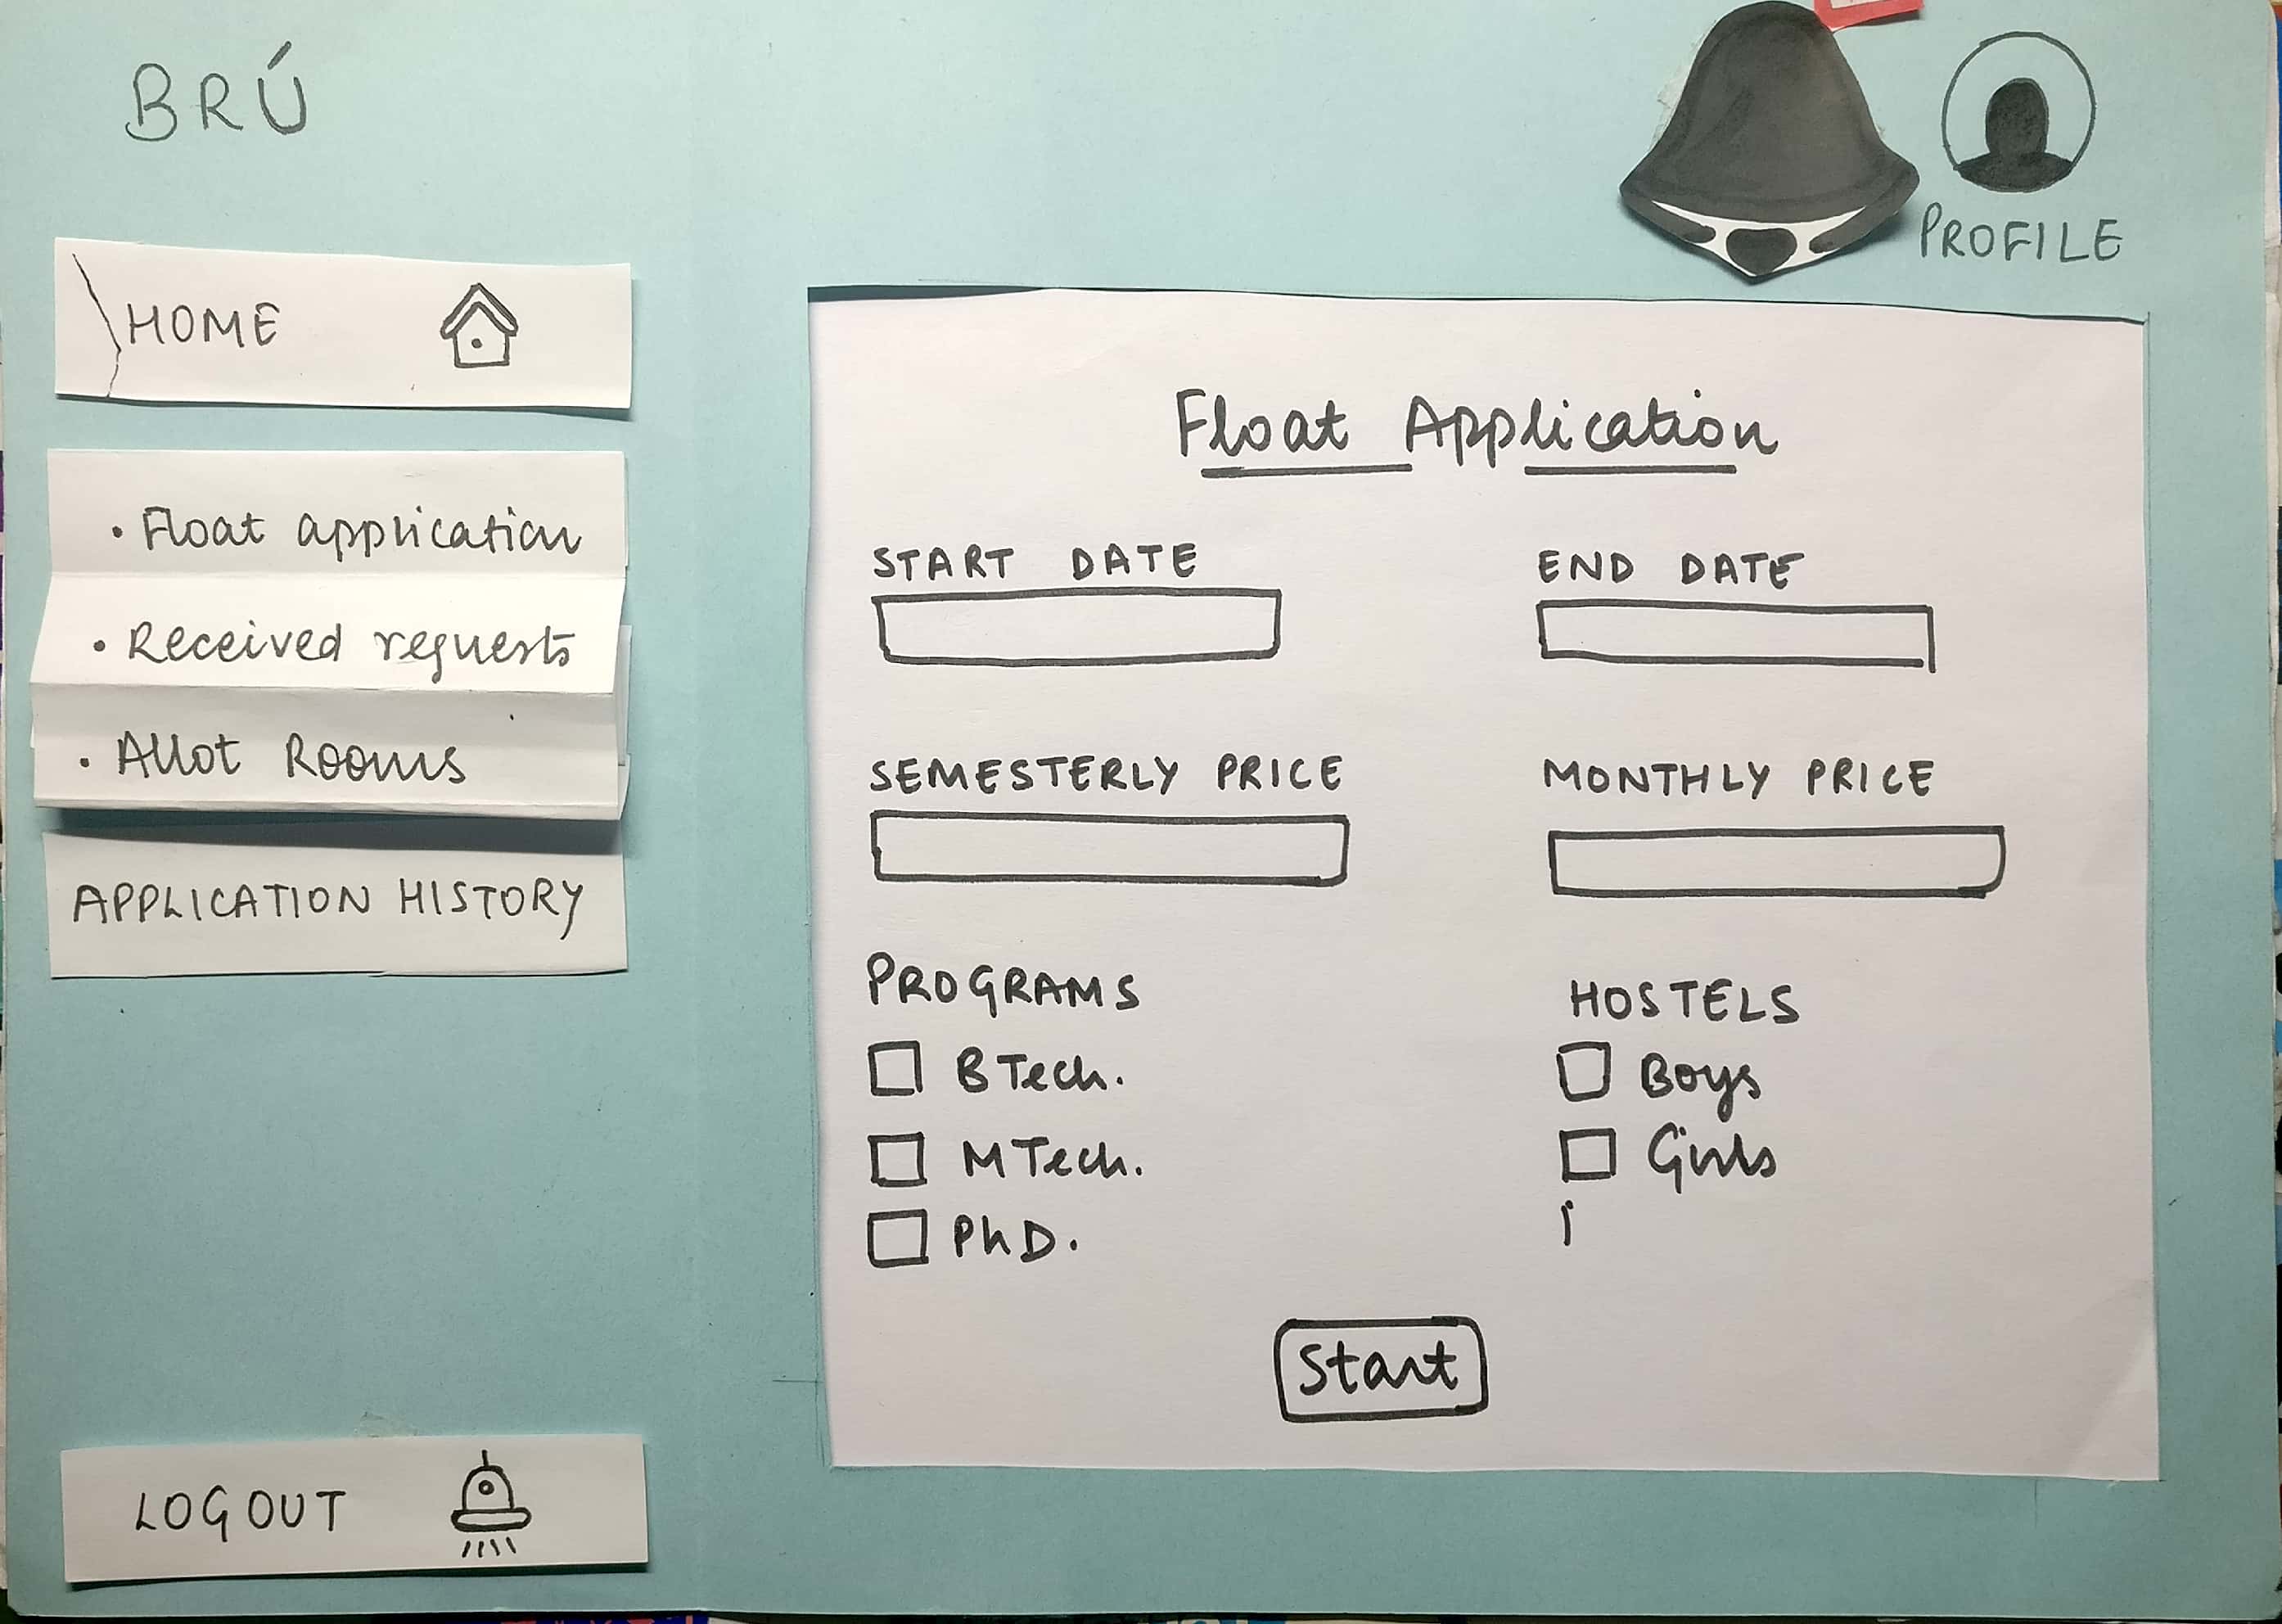 BRÚ
PROFILE
HOME
• Float application
• Received requests
• Allot Rooms
APPLICATION HISTORY
LOGOUT
Float Application
START DATE
END DATE
SEMESTERLY PRICE
MONTHLY PRICE
PROGRAMS
HOSTELS
BTech.
Boys
MTech.
Girls
PhD.
Start